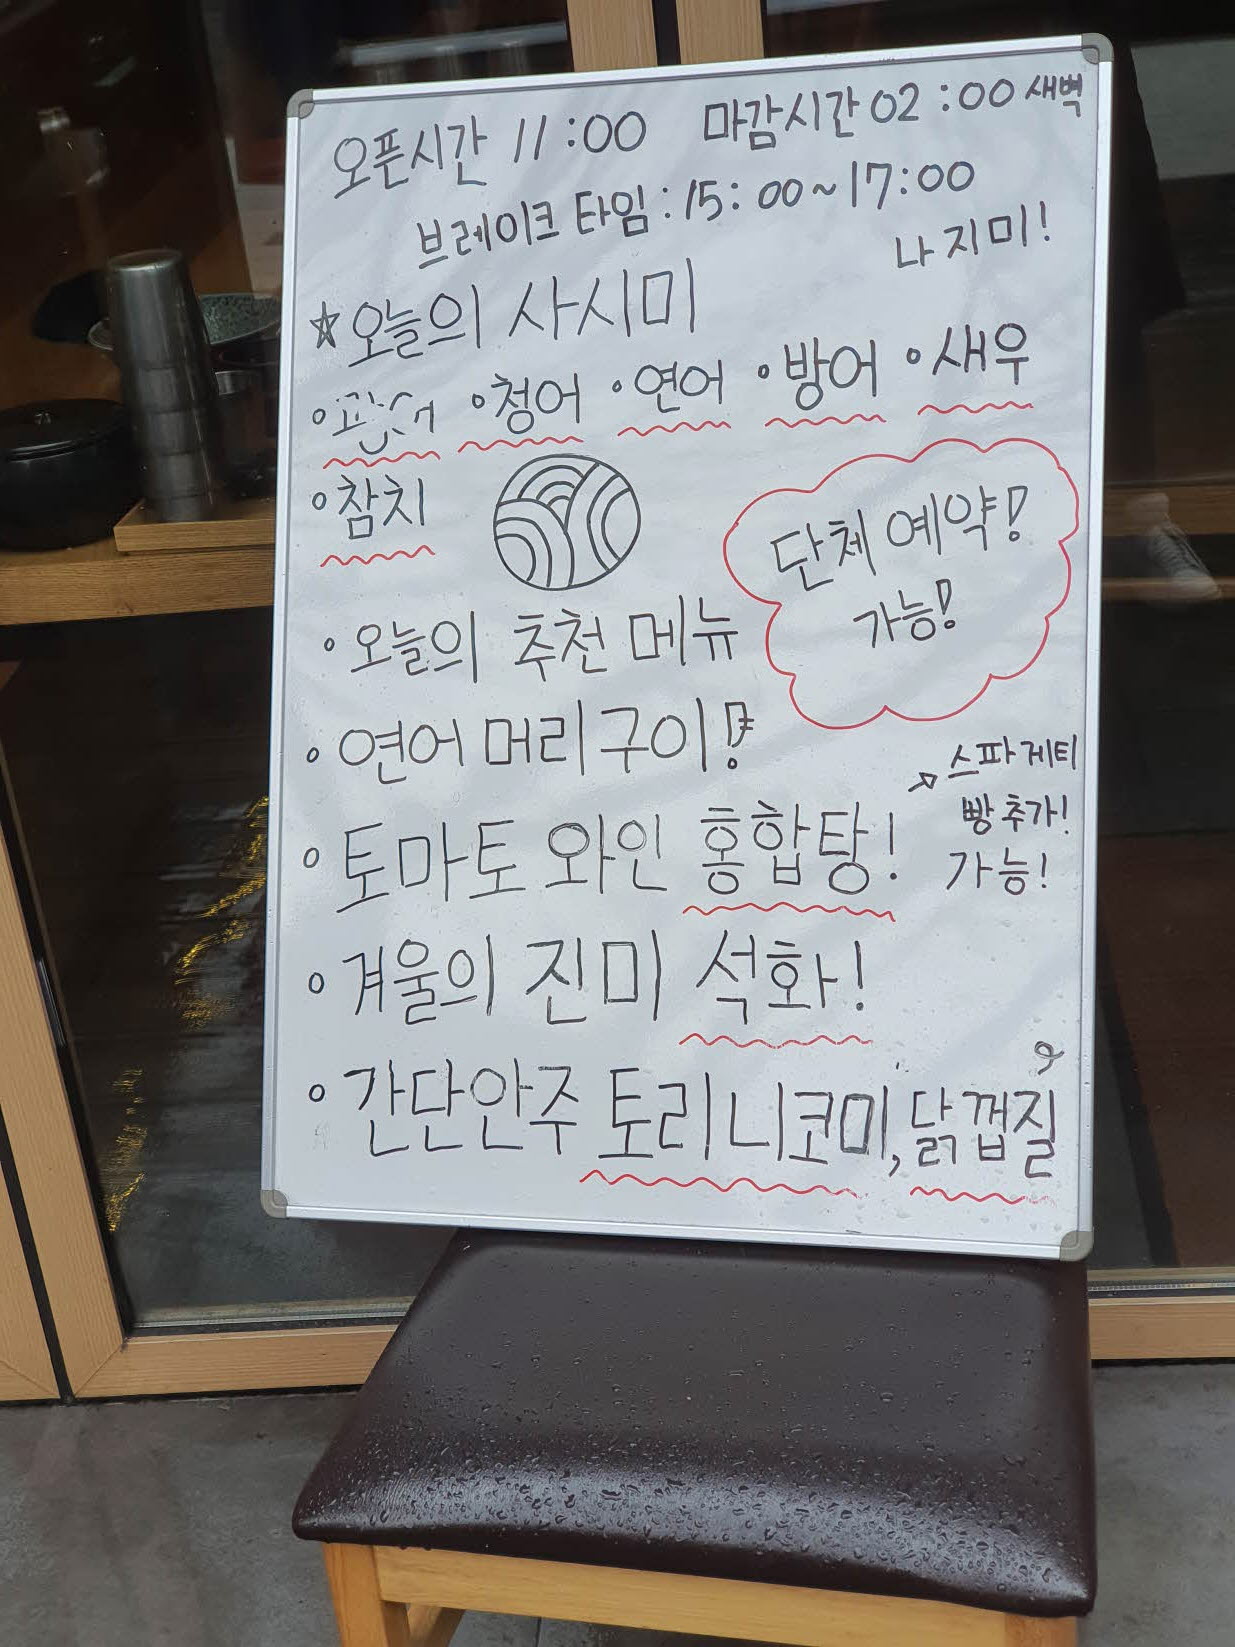 오픈시간 11:00 마감시간 02:00 새벽
브레이크 타임:15:00~17:00
나지미!
☆오늘의 사시미
•청어 •연어 •방어 •새우
•참치
단체 예약!
가능!
•오늘의 추천 메뉴
•연어 머리 구이!
스파게티
빵 추가!
가능!
•토마토 와인 홍합탕!
•겨울의 진미 석화!
•간단안주 토리 니코미, 닭껍질